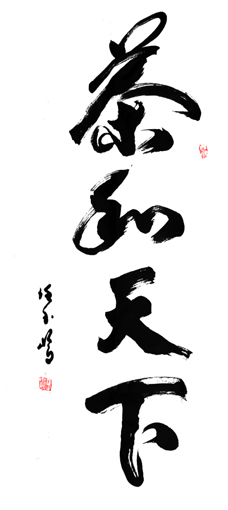 茶和天下